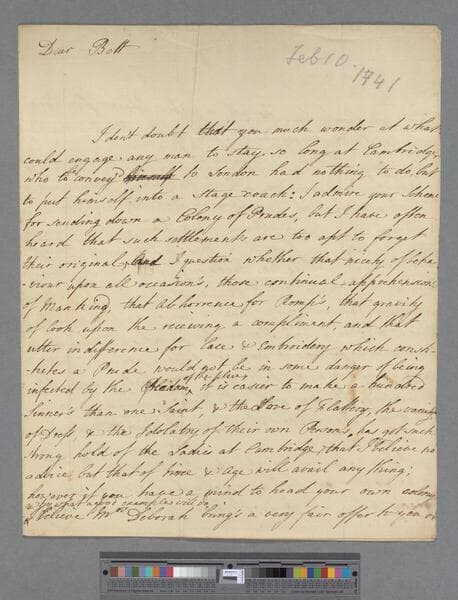 Dear Bott
Feb 10. 1741
I don't doubt that you much wonder at what
could engage any man to stay so long at Cambridge,
who to convey himself to London had nothing to do but
to put himself into a stage coach: I admire your scheme
for sending down a Colony of Prudes, but I have often
heard that such settlements are too apt to forget
their original, And I question whether that nicety of beha-
-viour upon all occasions, those continual apprehensions
of Mankind, that Abhorrence for Romps, that gravity
of look upon the recieving a compliment, and that
utter indifference for Lace & Embroidery which consti-
tutes a Prude would not be in some danger of being
infected by the of the place, it is easier to make a hundred
Sinners than one Saint, & the Love of Flattery, the
of Dress, & the Idolatry of their own Persons, has got such
strong hold of the Ladies at Cambridge, that I believe no
advice but that of time & Age will avail any thing;
however if you have a mind to head your own colony
& try what a good example will do,
I believe Mrs Deborah bring's a very fair offer to you